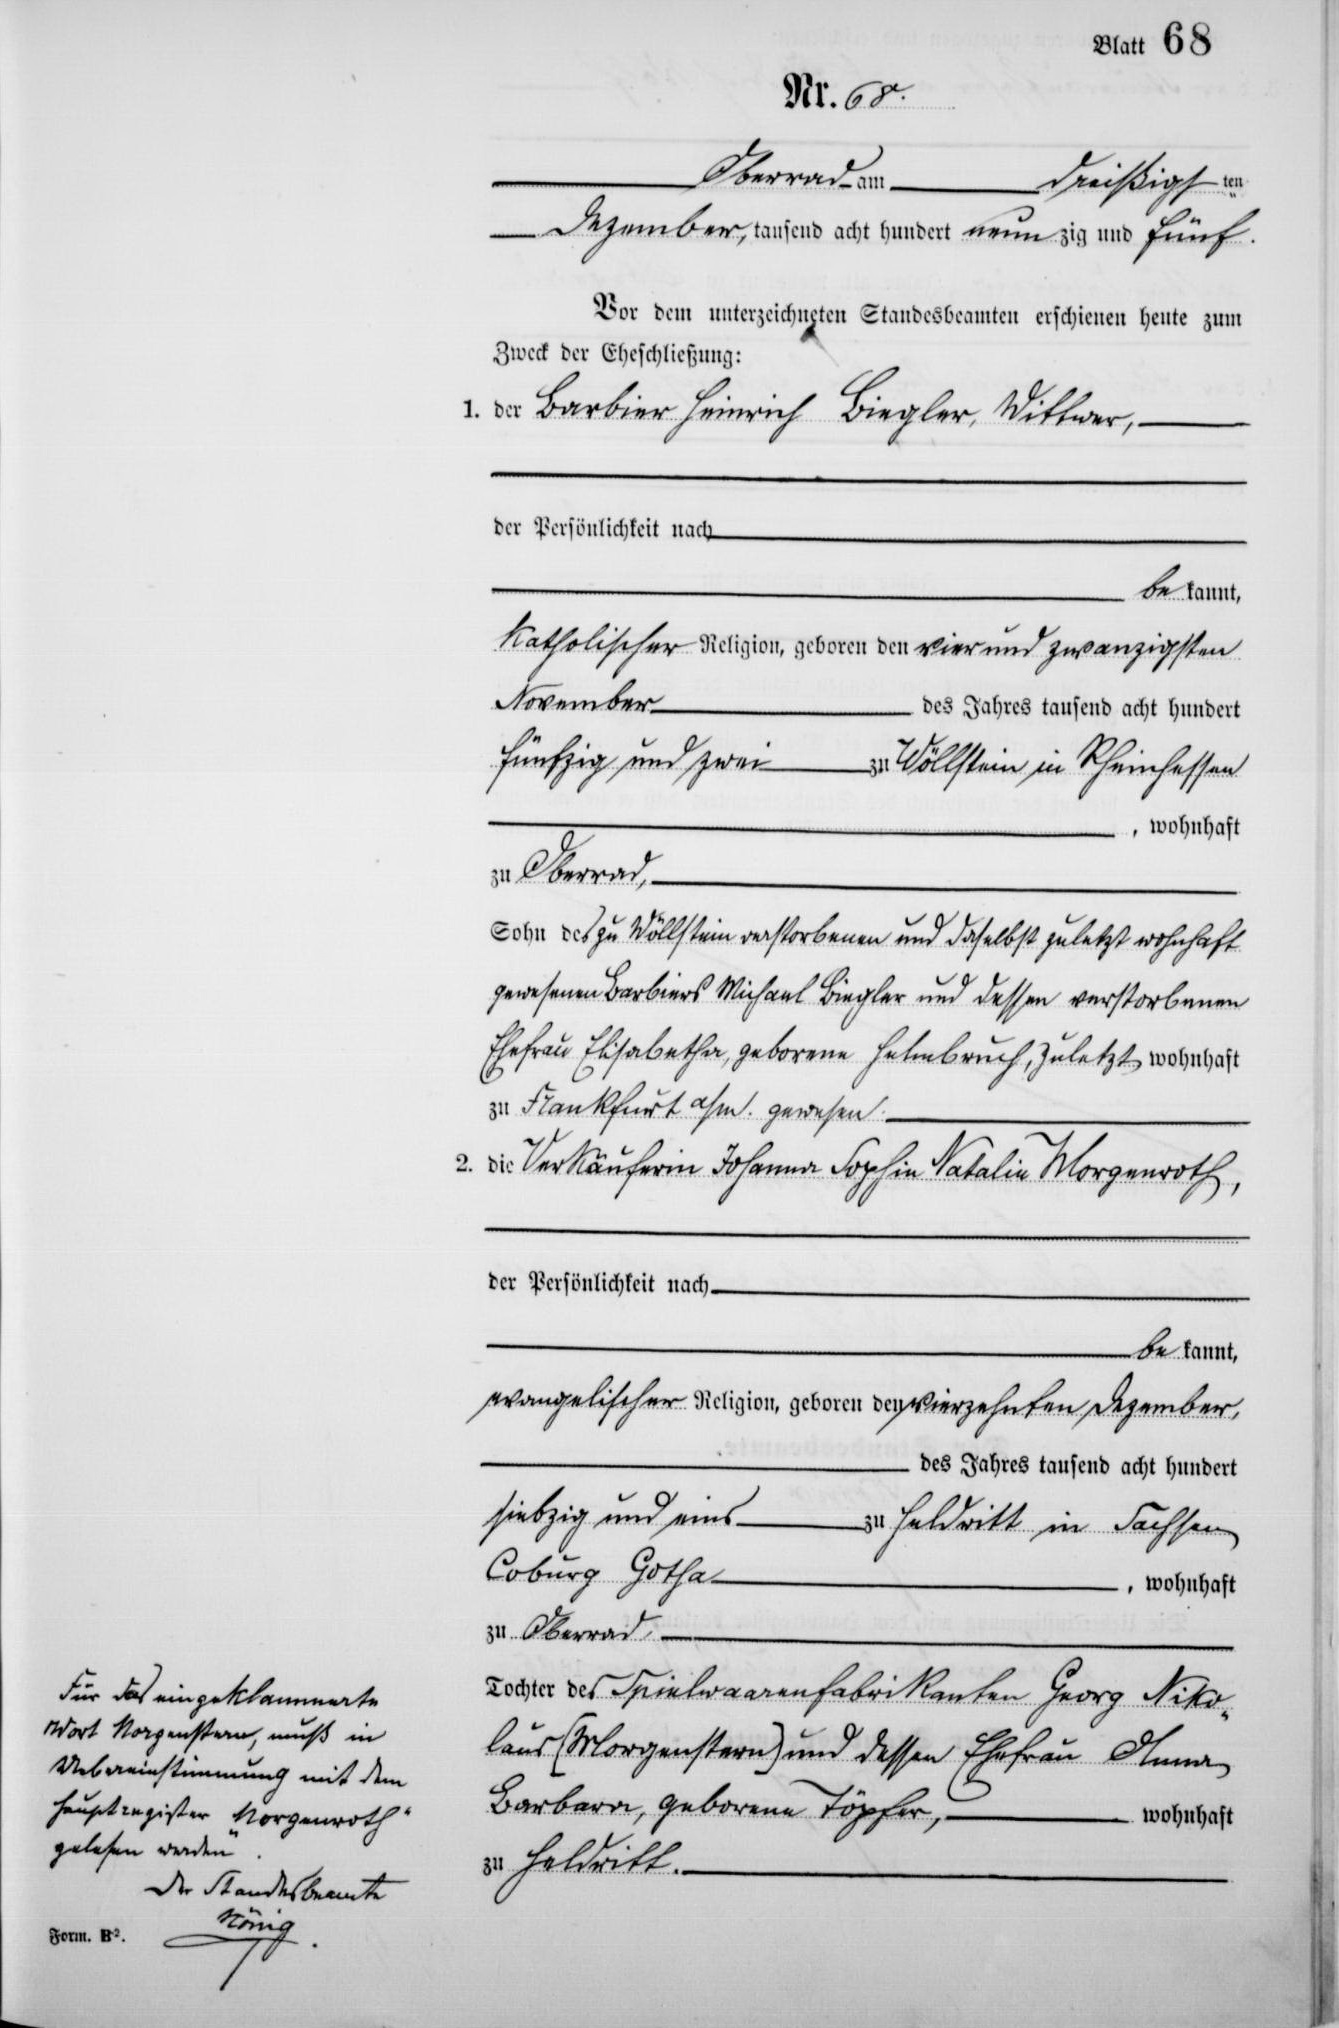 Blatt 68
Nr. 68.
Oberrad am dreißigsten
Dezember, tausend acht hundert neunzig und fünf.
Vor dem unterzeichneten Standesbeamten erschienen heute zum
Zweck der Eheschließung:
1. der Barbier Heinrich Biegler, Wittwer,
der Persönlichkeit nach
bekannt,
katholischer Religion, geboren den vierundzwanzigsten
November des Jahres tausend acht hundert
fünfzig und zwei zu Wöllstein in Rheinhessen
, wohnhaft
zu Oberrad,
Sohn des zu Wöllstein verstorbenen und daselbst zuletzt wohnhaft
gewesenen Barbiers Michael Biegler und dessen verstorbenen
Ehefrau Elisabetha, geborene Helmbruch, zuletzt wohnhaft
zu Frankfurt a/M. gewesen.
2. die Verkäuferin Johanna Sophie Natalie Morgenroth,
der Persönlichkeit nach
bekannt,
evangelischer Religion, geboren den vierzehnten Dezember,
des Jahres tausend acht hundert
siebzig und eins zu Heldritt in Sachsen
Coburg Gotha , wohnhaft
zu Oberrad,
Tochter des Spielwaarenfabrikanten Georg Niko-
laus (Morgenstern) und dessen Ehefrau Anna
Barbara, geborene Töpfer, wohnhaft
zu Heldritt.
Für das eingeklammerte
Wort Morgenstern, muß in
Uebereinstimmung mit dem
Hauptregister "Morgenroth"
gelesen werden.
Der Standesbeamte
König
Form. B².